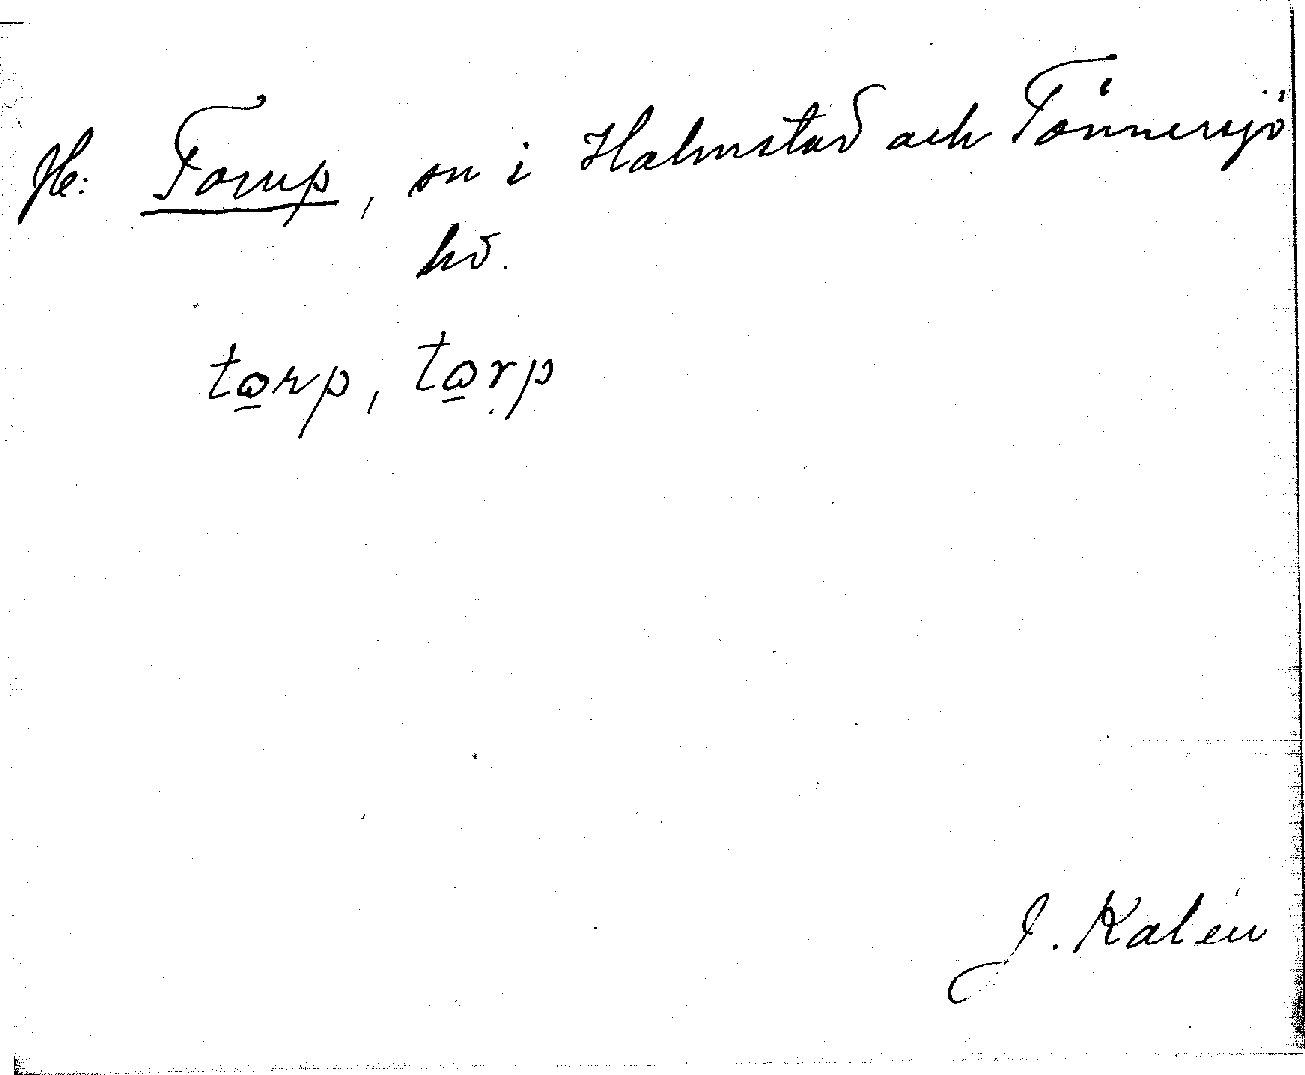 Hl: Torup, sn i Halmstad och Tönnersjö
hd.
tɷrp, tɷrp
J. Kalén